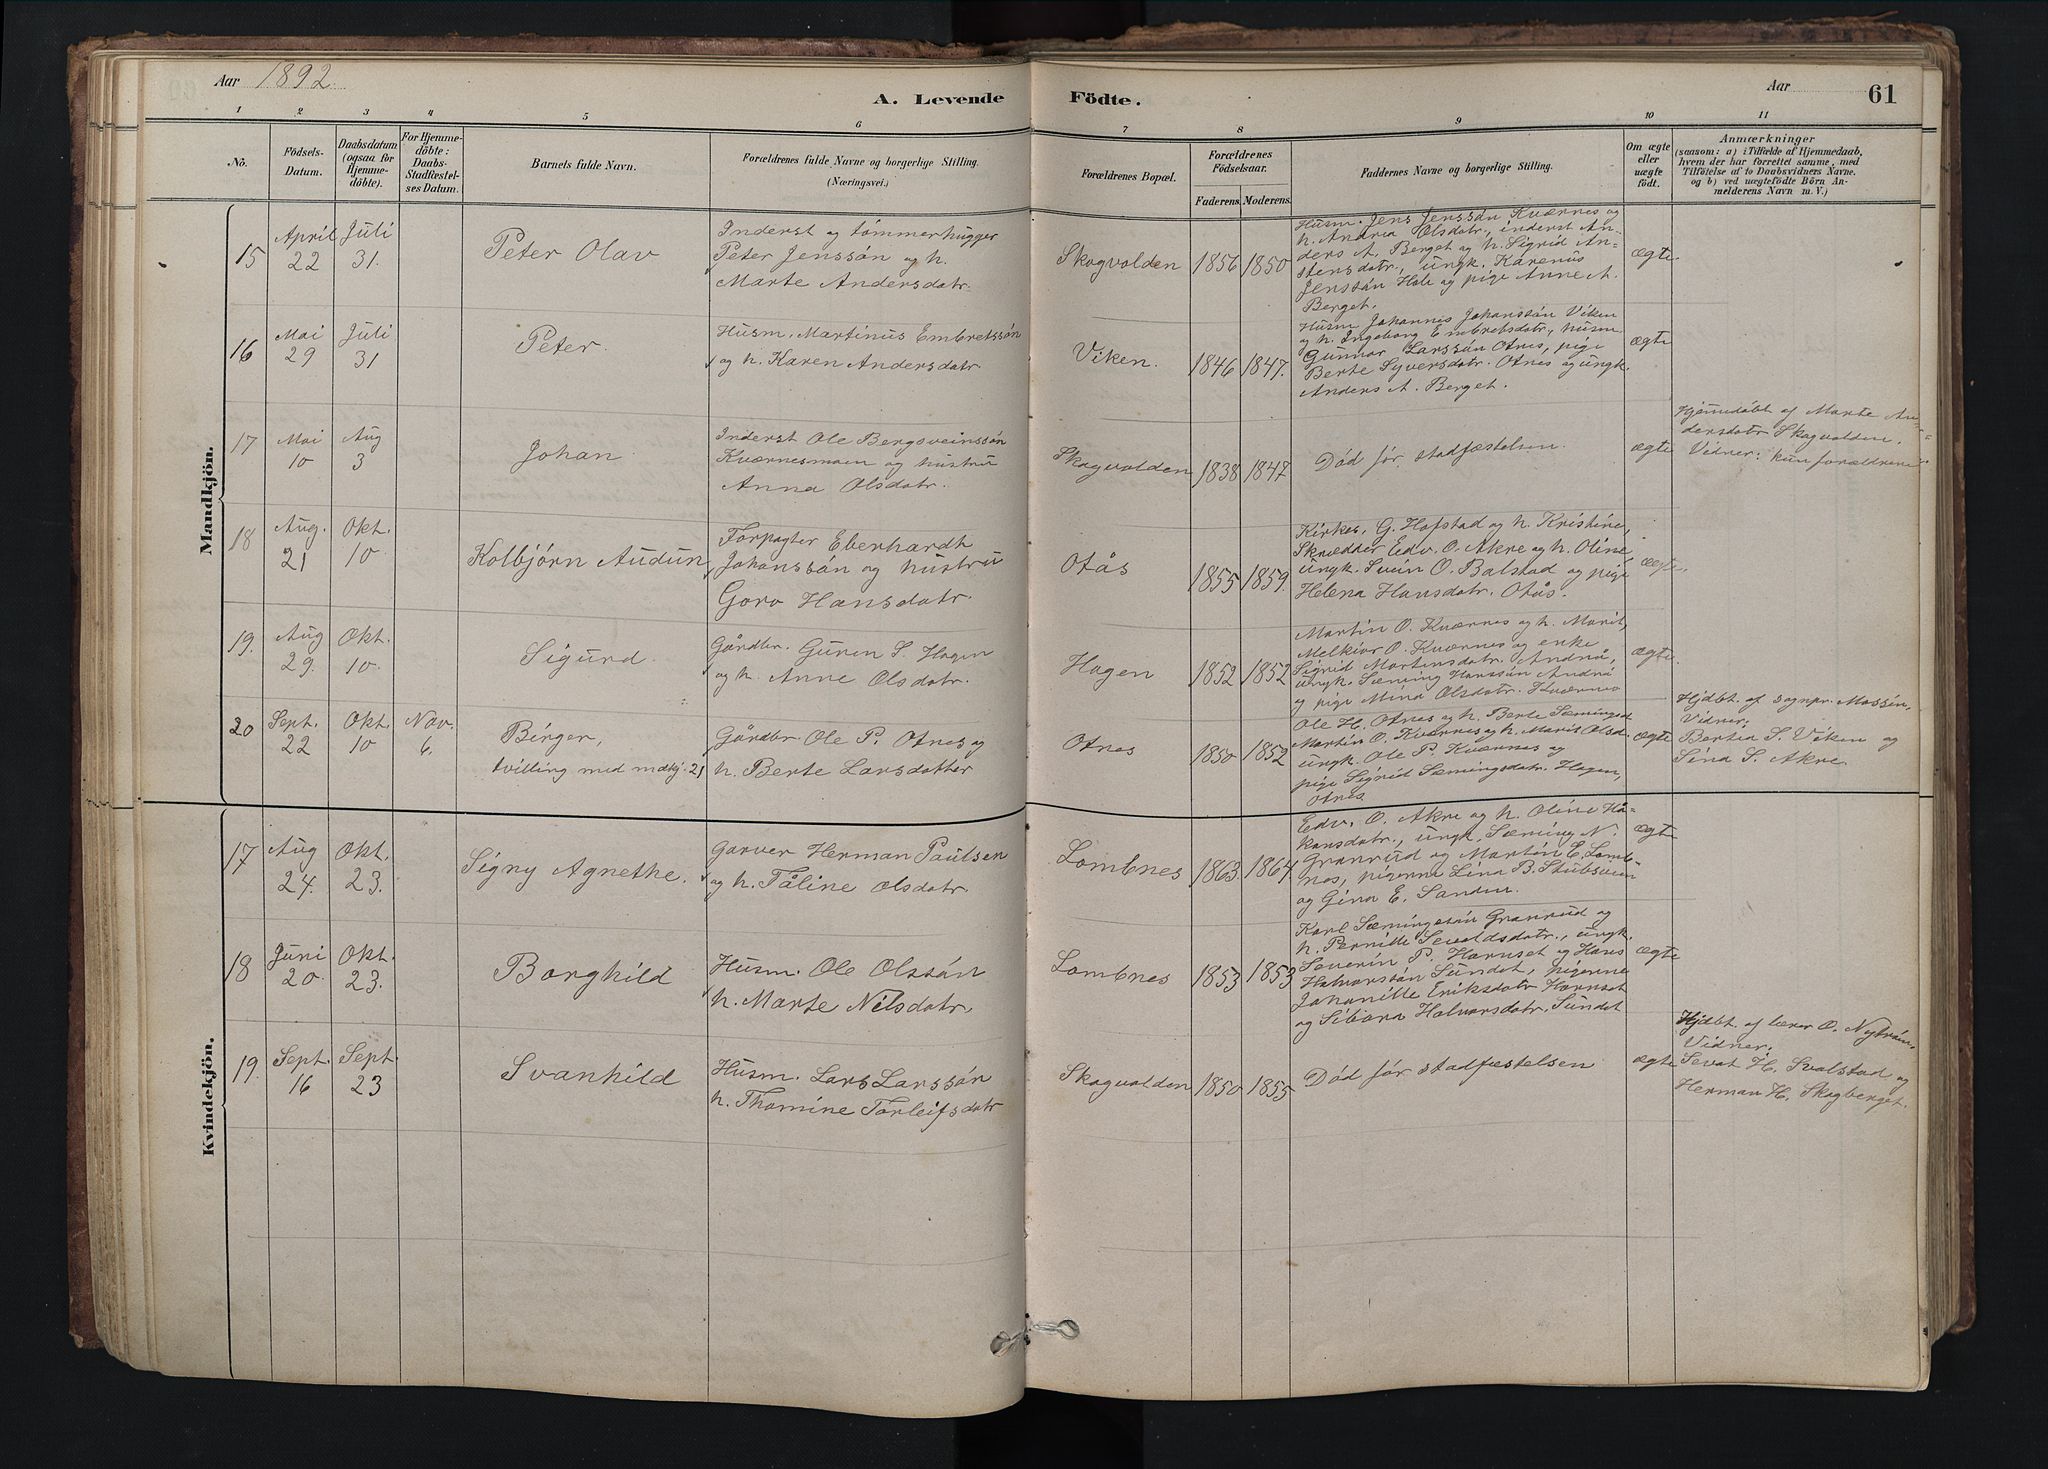 Aar 1892
A. Levende
Födte.
Aar
61
1 2 3 4 5 6 7 8 9 10 11
No.
Födsels-
Datum.
Daabsdatum
(ogsaa for
Hjemme-
döbte).
For Hjemme-
döbte:
Daabs-
Stadfæstel-
ses Datum.
Barnets fulde Navn.
Forældrenes fulde Navne og borgerlige Stilling.
(Næringsvei.)
Forældrenes Bopæl.
Forældrenes
Födselsaar.
Faderens. Moderens.
Faddernes Navne og borgerlige Stilling.
Om ægte
eller
uægte
födt.
Anmærkninger
(saasom: a) i Tilfælde af Hjemmedaab,
hvem der har forrettet samme, med
Tilföielse af to Daabsvidners Navne.
og b) ved uægtefödte Börn An-
melderens Navn m. V.)
Mandkjön.
15
April
22
Juli
31.
Peter Olav
Inderst og tömmerhugger
Peter Jenssön og h.
Marte Andersdatr.
Skogvolden
1856 1850
Husm. Jens Jenssön Kværnes og
h. Andrea Olsdatr., inderst An-
ders A. Berget og h. Sigrid An-
stensdatr., ungk. Karenius
Jenssön Hole og pige Anne A.
Berget.
ægte
16
Mai
29
Juli
31
Peter.
Husm. Martinus Embretssön
og h. Karen Andersdatr.
Viken.
1846 1847.
Husm. Johannes Johanssön Viken
og h. Ingeborg Embretsdatr., husm
Gunnar Larssön Otnes, pige
Berte Syversdatr. Otnes og ungk.
Anders A. Berget.
ægte
17
Mai
10
Aug
3
Johan
Inderst Ole Bergsveinssön
Kværnesmoen og hustru
Anna Olsdatr.
Skogvolden
1838 1847
Död för stadfæstelsen.
ægte
Hjemdöbt af Marte An-
dersdatr Skogvolden.
Vidner: kun forældrene
18
Aug.
21
Okt.
10
Kolbjörn Audun
Forpagter Eberhardt
Johanssön og hustru
Goro Hansdatr.
Otås
1855 1859.
Kirkes. G. Hofstad og h. Kristine,
Skrædder Edv. O. Akre og h. Oline,
ungk. Svein O. Balstad og pige
Helena Hansdatr. Otås.
ægte.
19.
Aug
29.
Okt.
10
Sigurd
Gårdbr. Guren S. Hagen
og h. Anne Olsdatr.
Hagen
1852 1852
Martin O. Kværnes og h. Marit,
Melkior O. Kværnes og enke
Sigrid Martinsdatr. Andrå,
ungk. Sæming Hanssön Andrå
og pige Mina Olsdatr. Kværnes
ægte.
20
Sept.
22
Okt
10
Nov.
6.
Birger,
tvilling med mdkj. 21
Gårdbr Ole P. Otnes og
h. Berte Larsdatter
Otnes
1850 1852
Ole H. Otnes og h. Berte Sæmingsd
Martin O. Kværnes og h. Marit Olsd.
ungk. Ole P. Kværnes og
pige Sigrid Sæmingsdatr. Hagen,
Otnes
ægte
Hjdbt. af sognpr. Mossin,
Vidner:
Bertia S. Viken og
Sina S. Akre.
Kvindekjön.
17
Aug
24.
Okt.
23.
Signy Agnethe.
Garver Herman Paulsen
og h. Tåline Olsdatr.
Lombnes
1863 1864
Edv. O. Akre og h. Oline Hå-
konsdatr., ungk. Sæming N.
Granrud og Martin E. Lomb-
nes, pigerne Lina B. Stubsveen
og Gina E. Sanden.
ægte
18
Juni
20.
Okt.
23.
Borghild
Husm. Ole Olssön
h. Marte Nilsdatr.
Lombnes
1853 1853
Karl Sæmingssön Granrud og
h. Pernille Sevaldsdatr., ungk.
Severin P. Hornset og Hans
Halvorssön Sundet, pigerne
Johanille Eriksdatr Hornset
og Sibara Halvorsdatr. Sundet
ægte
19.
Sept.
16
Sept.
23
Svanhild
Husm. Lars Larssön
h. Thomine Torleifsdatr
Skogvolden
1850 1855
Död för stadfæstelsen
ægte
Hjdbt. af lærer O. Nytröen.
Vidner:
Sevat H. Svalstad og
Herman H. Skogberget.